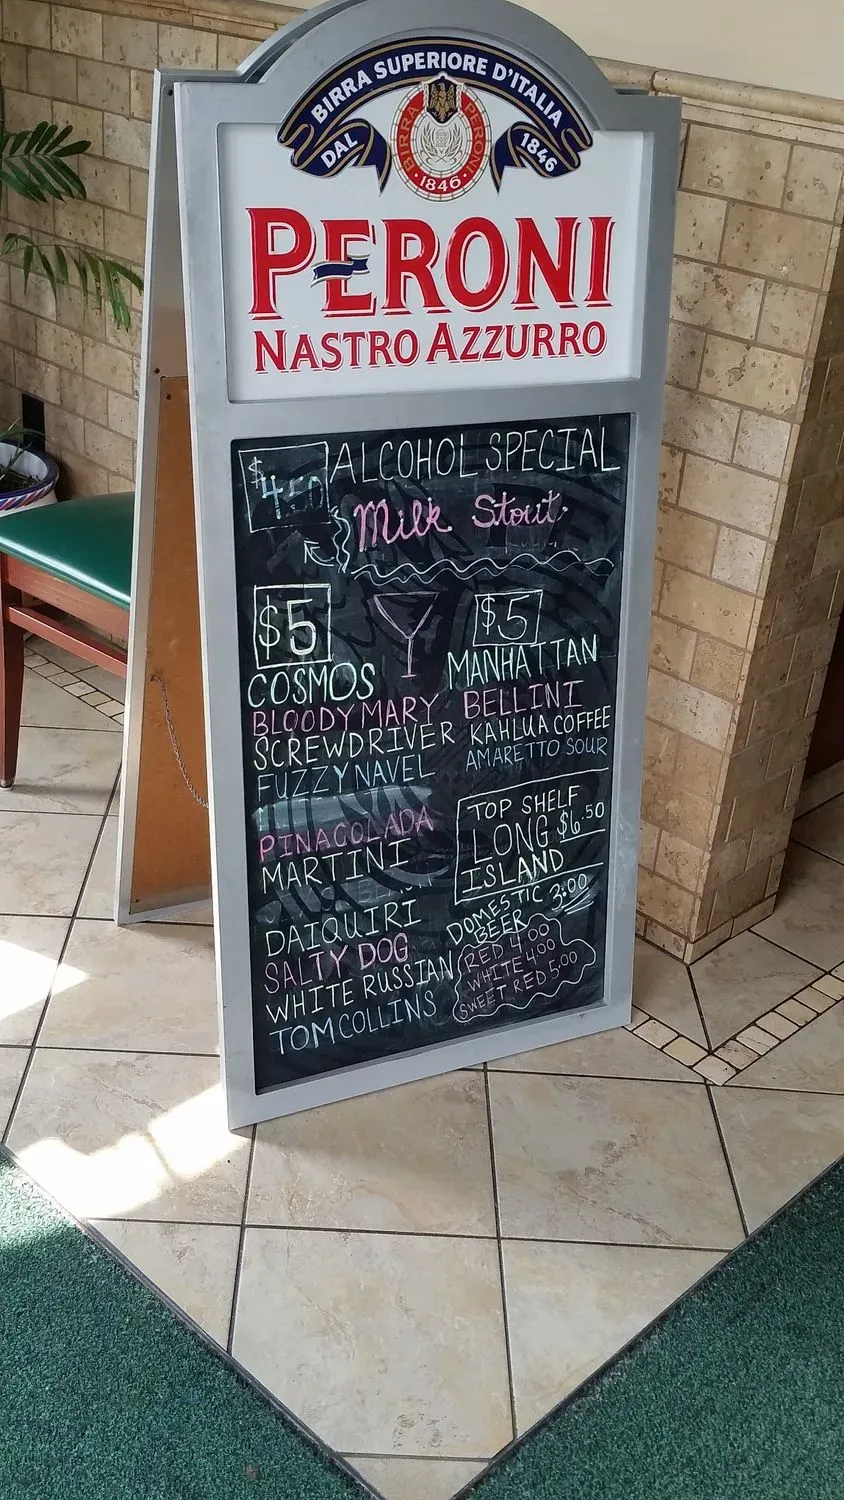 BIRRA SUPERIORE D'ITALIA
DAL 1846
BIRRA PERONI
·1846·
PERONI
NASTRO AZZURRO
$4.50 ALCOHOL SPECIAL
Milk Stout
$5
COSMOS
BLOODY MARY
SCREWDRIVER
FUZZY NAVEL
PINACOLADA
MARTINI
DAIQUIRI
SALTY DOG
WHITE RUSSIAN
TOM COLLINS
$5
MANHATTAN
BELLINI
KAHLUA COFFEE
AMARETTO SOUR
TOP SHELF
LONG $6.50
ISLAND
DOMESTIC 3.00
BEER
RED 4.00
WHITE 4.00
SWEET RED 5.00